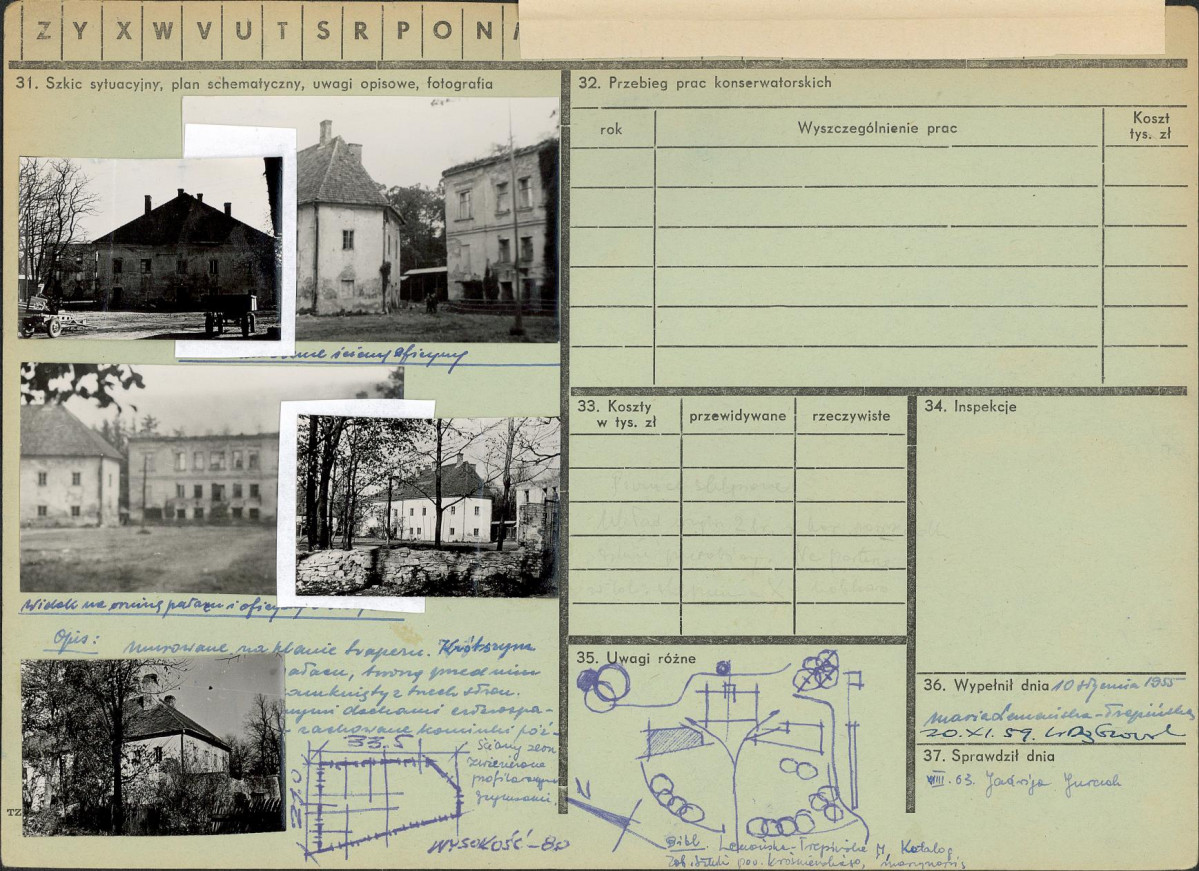 Z Y X W V U T S R P O N
31. Szkic sytuacyjny, plan schematyczny, uwagi opisowe, fotografia
ściany oficyny
Widok na ruinę pałacu i oficynę
Opis: murowane na planie trapezu. Krótszym
pałacu, tworzą przed nim
zamknięty z trzech stron.
dachami czterospa-
zachowane kominki póź-
Ściany zewn.
zwieńczone
profilowanym
gzymsami.
33.5
21.0
WYSOKOŚĆ - 8.0
N
TZ
32. Przebieg prac konserwatorskich
rok
Wyszczególnienie prac
Koszt
tys. zł
33. Koszty
w tys. zł
przewidywane
rzeczywiste
34. Inspekcje
35. Uwagi różne
Bibl. Lemańska-Trepińska M. Katalog
Zab. Sztuki pow.
36. Wypełnił dnia 10 stycznia 1955
Maria Lemańska-Trepińska
20.XI.59.
37. Sprawdził dnia
VIII. 63. Jadwiga